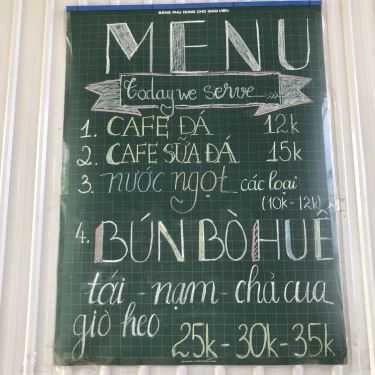 BẢNG PHỤ DÙNG CHO GIÁO VIÊN
MENU
Today we serve....
1. CAFÉ ĐÁ 12k
2. CAFÉ SỮA ĐÁ 15k
3. nước ngọt các loại
(10k-12k)
4. BÚN BÒ HUẾ
tái - nạm - chả cua
giò heo 25k-30k-35k